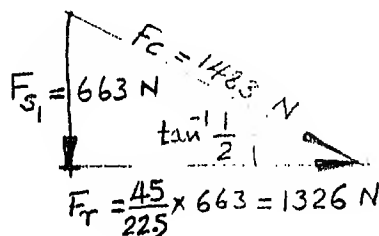 F_c = 1483 N
F_{s_1} = 663 N
tan^{-1} 1/2
F_r = 45/22.5 × 663 = 1326 N